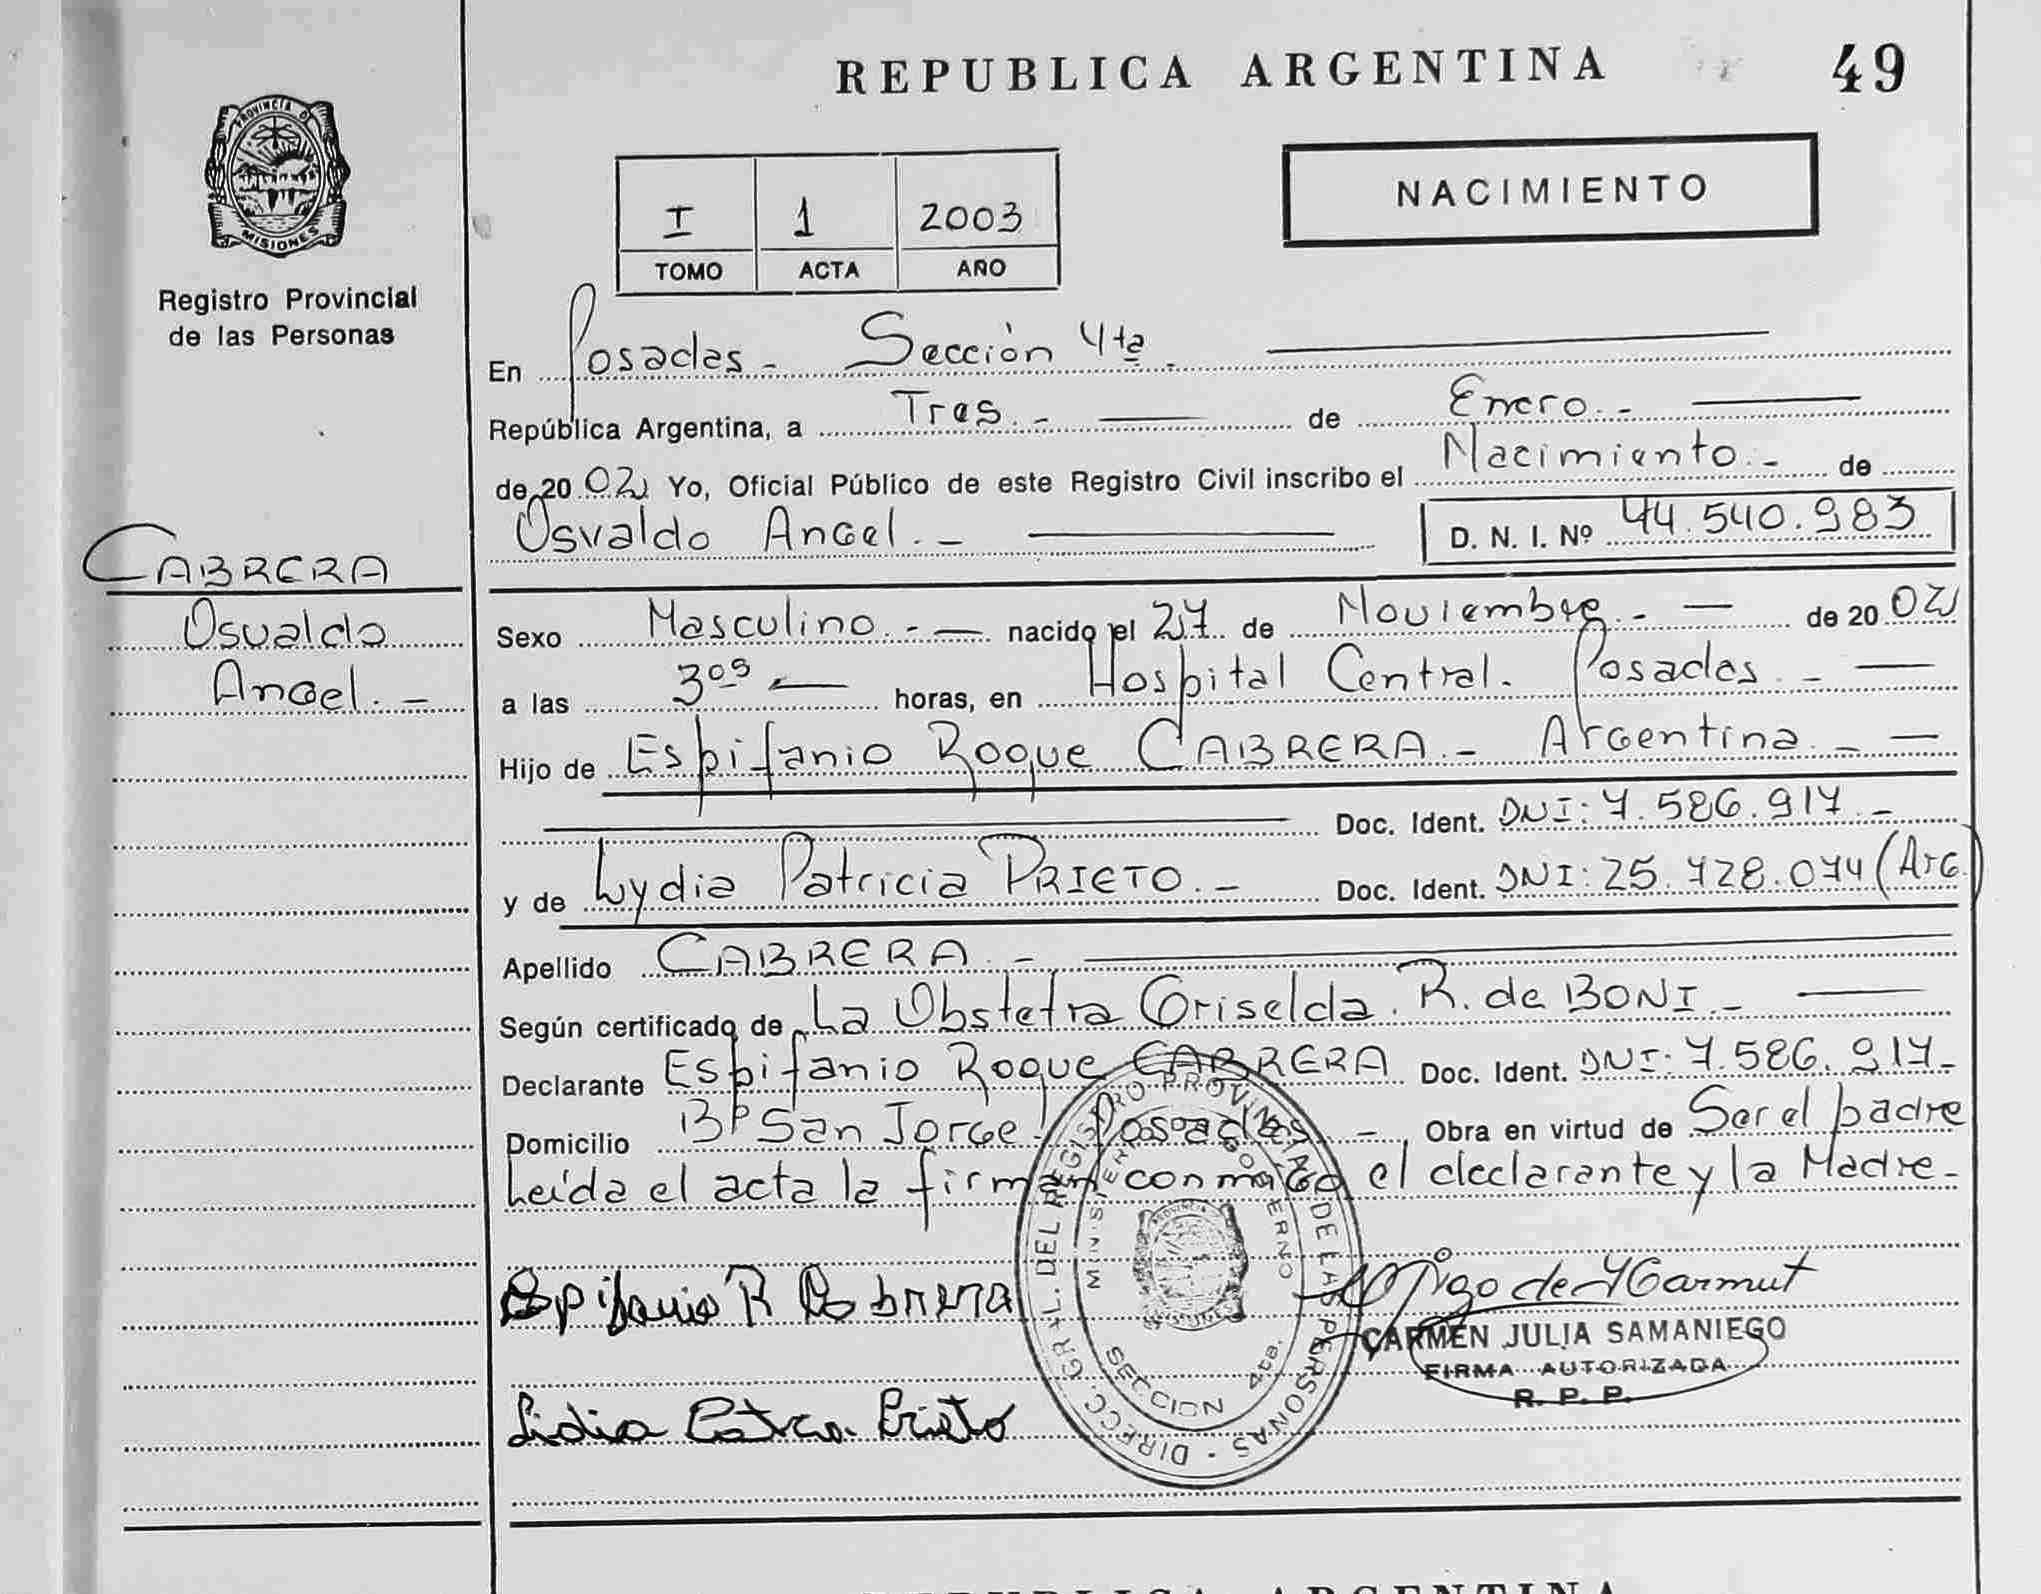 REPUBLICA ARGENTINA 49
PROVINCIA D
MISIONES
Registro Provincial
de las Personas
I 1 2003
TOMO ACTA AÑO
NACIMIENTO
En Posadas - Sección 4ta.
República Argentina, a Tres.- de Enero.-
de 2002 Yo, Oficial Público de este Registro Civil inscribo el Nacimiento.- de
Osvaldo Angel.- D. N. I. Nº 44.540.983
CABRERA
Osvaldo
Angel.-
Sexo Masculino.- nacido el 27 de Noviembre.- de 2002
a las 3 horas, en Hospital Central. Posadas.-
Hijo de Espifanio Roque CABRERA.- Argentina.-
Doc. Ident. DNI: 7.586.917.-
y de Lydia Patricia PRIETO.- Doc. Ident. DNI: 25.728.074 (Arg.)
Apellido CABRERA.-
Según certificado de La Obstetra Griselda. R. de BONI.-
Declarante Espifanio Roque CABRERA Doc. Ident. DNI: 7.586.917-
Domicilio Bº San Jorge Posadas.-, Obra en virtud de Ser el padre
Leída el acta la firman conmigo el declarante y la Madre-
Espifanio R Cabrera
CARMEN JULIA SAMANIEGO
FIRMA AUTORIZADA
R. P. P.
Lidia Prieto
DIRECC. GRAL. DEL REGISTRO PROVINCIAL DE LAS PERSONAS
MINISTERIO GOBIERNO
SECCION 4ta.
REPUBLICA ARGENTINA